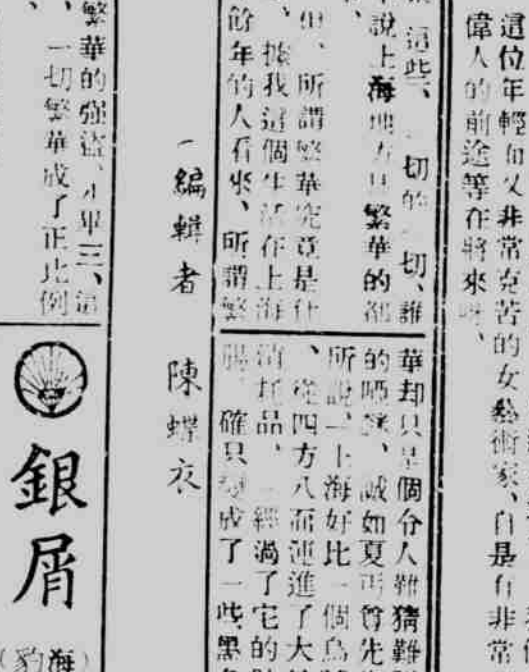 這位年輕而又非常克苦的女藝術家、自是有非常
偉人的前途等在將來呀、
這些、一切的一切、誰
說上海地方是繁華的都
、
但、所謂繁華究竟是什
、據我這個生活在上海
餘年的人看來、所謂繁
華却只是個令人難猜難
的啞謎、誠如夏丏尊先
所說、上海好比一個烏
、從四方八面運進了大
消耗品、經過了它的
腸、確只變成了一些黑
編輯者 陳蝶衣
繁華的强盜、小畢三、這
、一切繁華成了正比例
銀屑
(海豹)